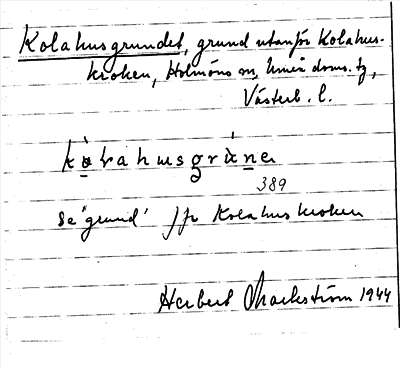 Kolahusgrundet, grund utanför Kolahus-
kroken, Holmöns sn, Umeå doms. tg,
Västerb. l.
kòlahusgrúnen
389
se 'grund' jfr Kolahuskroken
Herbert Markström 1944